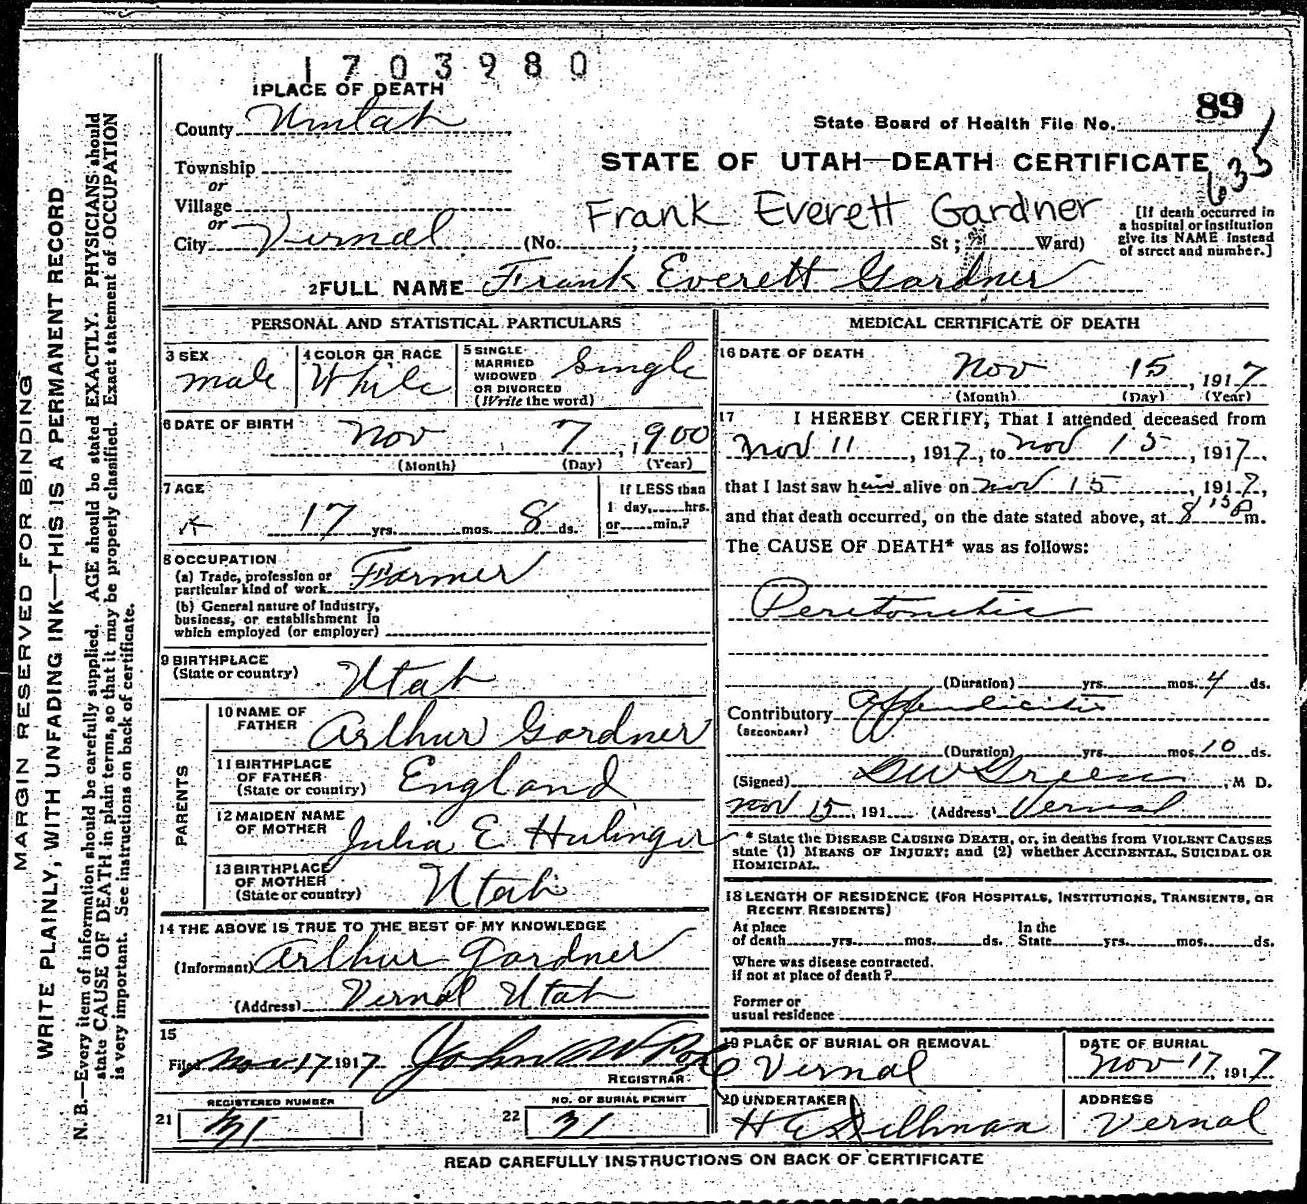 1703980
1 PLACE OF DEATH
County Uintah
State Board of Health File No. 89
635
Township
or
Village
or
City Vernal
STATE OF UTAH—DEATH CERTIFICATE
Frank Everett Gardner
(No. ; St; Ward)
[If death occurred in
a hospital or institution
give its NAME instead
of street and number.]
2 FULL NAME Frank Everett Gardner
PERSONAL AND STATISTICAL PARTICULARS
3 SEX
male
4 COLOR OR RACE
White
5 SINGLE
MARRIED
WIDOWED
OR DIVORCED
(Write the word)
Single
6 DATE OF BIRTH
Nov 7, 1900
(Month) (Day) (Year)
7 AGE
17 yrs. mos. 8 ds.
If LESS than
1 day, hrs.
or min.?
8 OCCUPATION
(a) Trade, profession or
particular kind of work Farmer
(b) General nature of Industry,
business, or establishment in
which employed (or employer)
9 BIRTHPLACE
(State or country) Utah
PARENTS
10 NAME OF
FATHER Arthur Gardner
11 BIRTHPLACE
OF FATHER
(State or country) England
12 MAIDEN NAME
OF MOTHER Julia E Hulinger
13 BIRTHPLACE
OF MOTHER
(State or country) Utah
14 THE ABOVE IS TRUE TO THE BEST OF MY KNOWLEDGE
(Informant) Arthur Gardner
(Address) Vernal Utah
15
Filed Nov 17 1917 John W
REGISTRAR
REGISTERED NUMBER
21 31
NO. OF BURIAL PERMIT
22 31
MEDICAL CERTIFICATE OF DEATH
16 DATE OF DEATH
Nov 15, 1917
(Month) (Day) (Year)
17 I HEREBY CERTIFY, That I attended deceased from
Nov 11, 1917, to Nov 15, 1917,
that I last saw him alive on Nov 15, 1917,
and that death occurred, on the date stated above, at 8 15 P m.
The CAUSE OF DEATH* was as follows:
Peritonitis
(Duration) yrs. mos. 4 ds.
Contributory Appendicitis
(SECONDARY)
(Duration) yrs. mos. 10 ds.
(Signed) G W Green, M D.
Nov 15, 191 (Address) Vernal
* State the DISEASE CAUSING DEATH, or, in deaths from VIOLENT CAUSES
state (1) MEANS OF INJURY; and (2) whether ACCIDENTAL, SUICIDAL OR
HOMICIDAL.
18 LENGTH OF RESIDENCE (FOR HOSPITALS, INSTITUTIONS, TRANSIENTS, OR
RECENT RESIDENTS)
At place
of death yrs. mos. ds.
In the
State yrs. mos. ds.
Where was disease contracted.
if not at place of death?
Former or
usual residence
19 PLACE OF BURIAL OR REMOVAL
Vernal
DATE OF BURIAL
Nov 17, 1917
20 UNDERTAKER
H E Dillman
ADDRESS
Vernal
READ CAREFULLY INSTRUCTIONS ON BACK OF CERTIFICATE
MARGIN RESERVED FOR BINDING
WRITE PLAINLY, WITH UNFADING INK—THIS IS A PERMANENT RECORD
N. B.—Every item of information should be carefully supplied. AGE should be stated EXACTLY. PHYSICIANS should
state CAUSE OF DEATH in plain terms, so that it may be properly classified. Exact statement of OCCUPATION
is very important. See instructions on back of certificate.